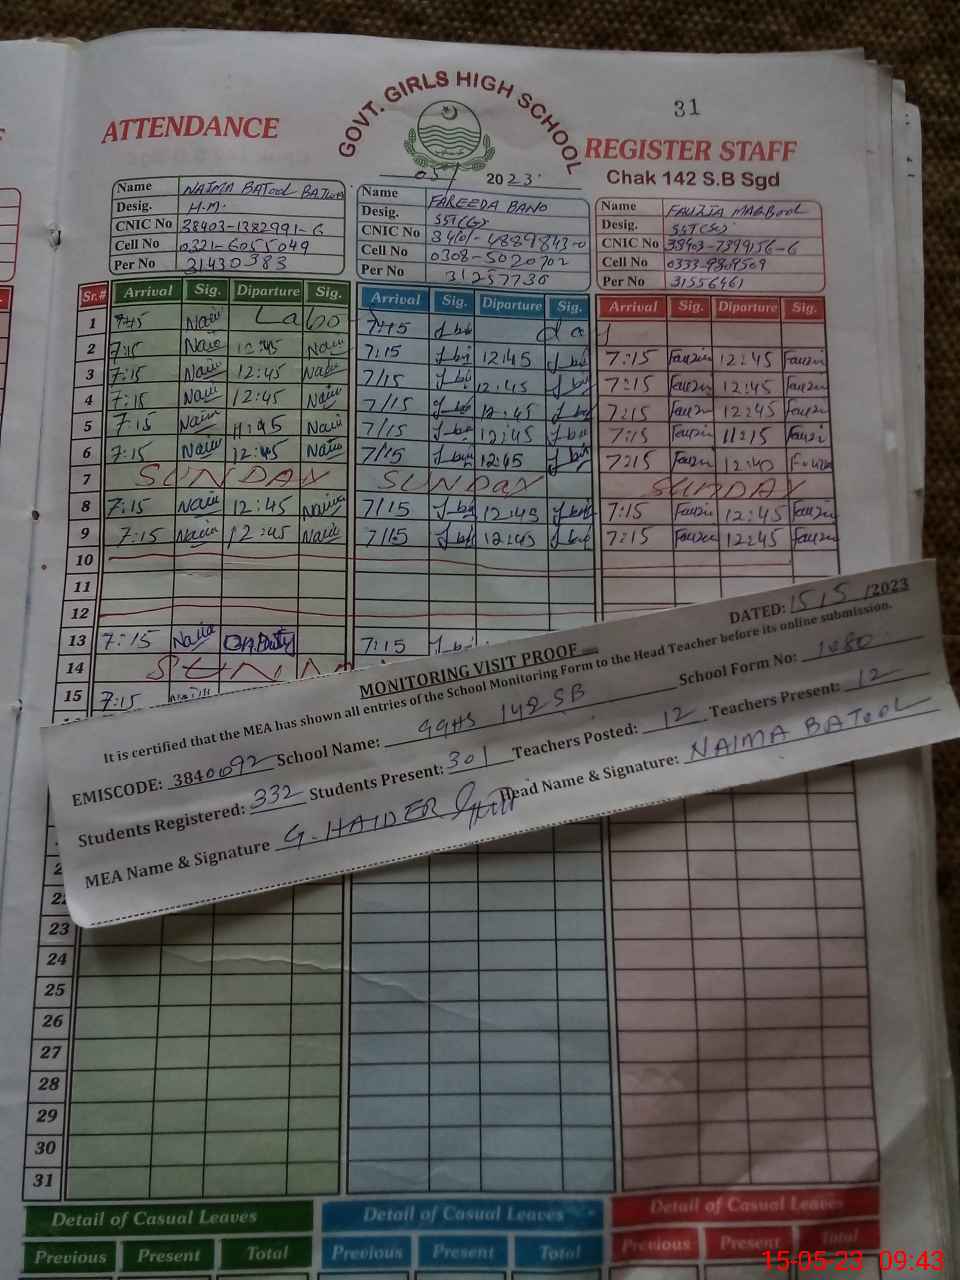 31
GOVT. GIRLS HIGH SCHOOL
ATTENDANCE REGISTER STAFF
05/ 2023
Chak 142 S.B Sgd
Name NAIMA BATOOL BATOOL
Desig. H.M.
CNIC No 38403-1382991-6
Cell No 0321-6055049
Per No 31430383
Name FAREEDA BANO
Desig. SST(G)
CNIC No
Cell No 0308-5020702
Per No 31257736
Name FAUZIA MAQBOOL
Desig. SST(Sc)
CNIC No 38403-7399156-6
Cell No
Per No 31556461
Sr.# Arrival Sig. Diparture Sig. Arrival Sig. Diparture Sig. Arrival Sig. Diparture Sig.
1 7:45 Naim Labo 7:15 day
2 7:15 Naim 12:45 Naim 7:15 12:45 7:15 Fauzia 12:45 Fauzia
3 7:15 Naim 12:45 Naim 7/15 12:45 7:15 Fauzia 12:45 Fauzia
4 7:15 Naim 12:45 Naim 7/15 12:45 7:15 Fauzia 12:45 Fauzia
5 7:15 Naim 11:45 Naim 7/15 12:45 7:15 Fauzia 11:15 Fauzia
6 7:15 Naim 12:45 Naim 7/15 12:45 7:15 Fauzia 12:40 Fauzia
7 SUNDAY SUNDAY SUNDAY
8 7:15 Naim 12:45 Naim 7/15 12:45 7:15 Fauzia 12:45 Fauzia
9 7:15 Naim 12:45 Naim 7/15 12:45 7:15 Fauzia 12:45 Fauzia
10
11
12
13 7:15 Naim On Duty 7:15
14 SUN
15 7:15
MONITORING VISIT PROOF DATED: 15/5/2023
It is certified that the MEA has shown all entries of the School Monitoring Form to the Head Teacher before its online submission.
EMISCODE: 3840092 School Name: GGHS 142 SB School Form No: 1080
Students Registered: 332 Students Present: 301 Teachers Posted: 12 Teachers Present: 12
MEA Name & Signature G. HAIDER Head Name & Signature: NAIMA BATOOL
23
24
25
26
27
28
29
30
31
Detail of Casual Leaves Detail of Casual Leaves Detail of Casual Leaves
Previous Present Total Previous Present Total Previous Present Total
15-05-23 09:43